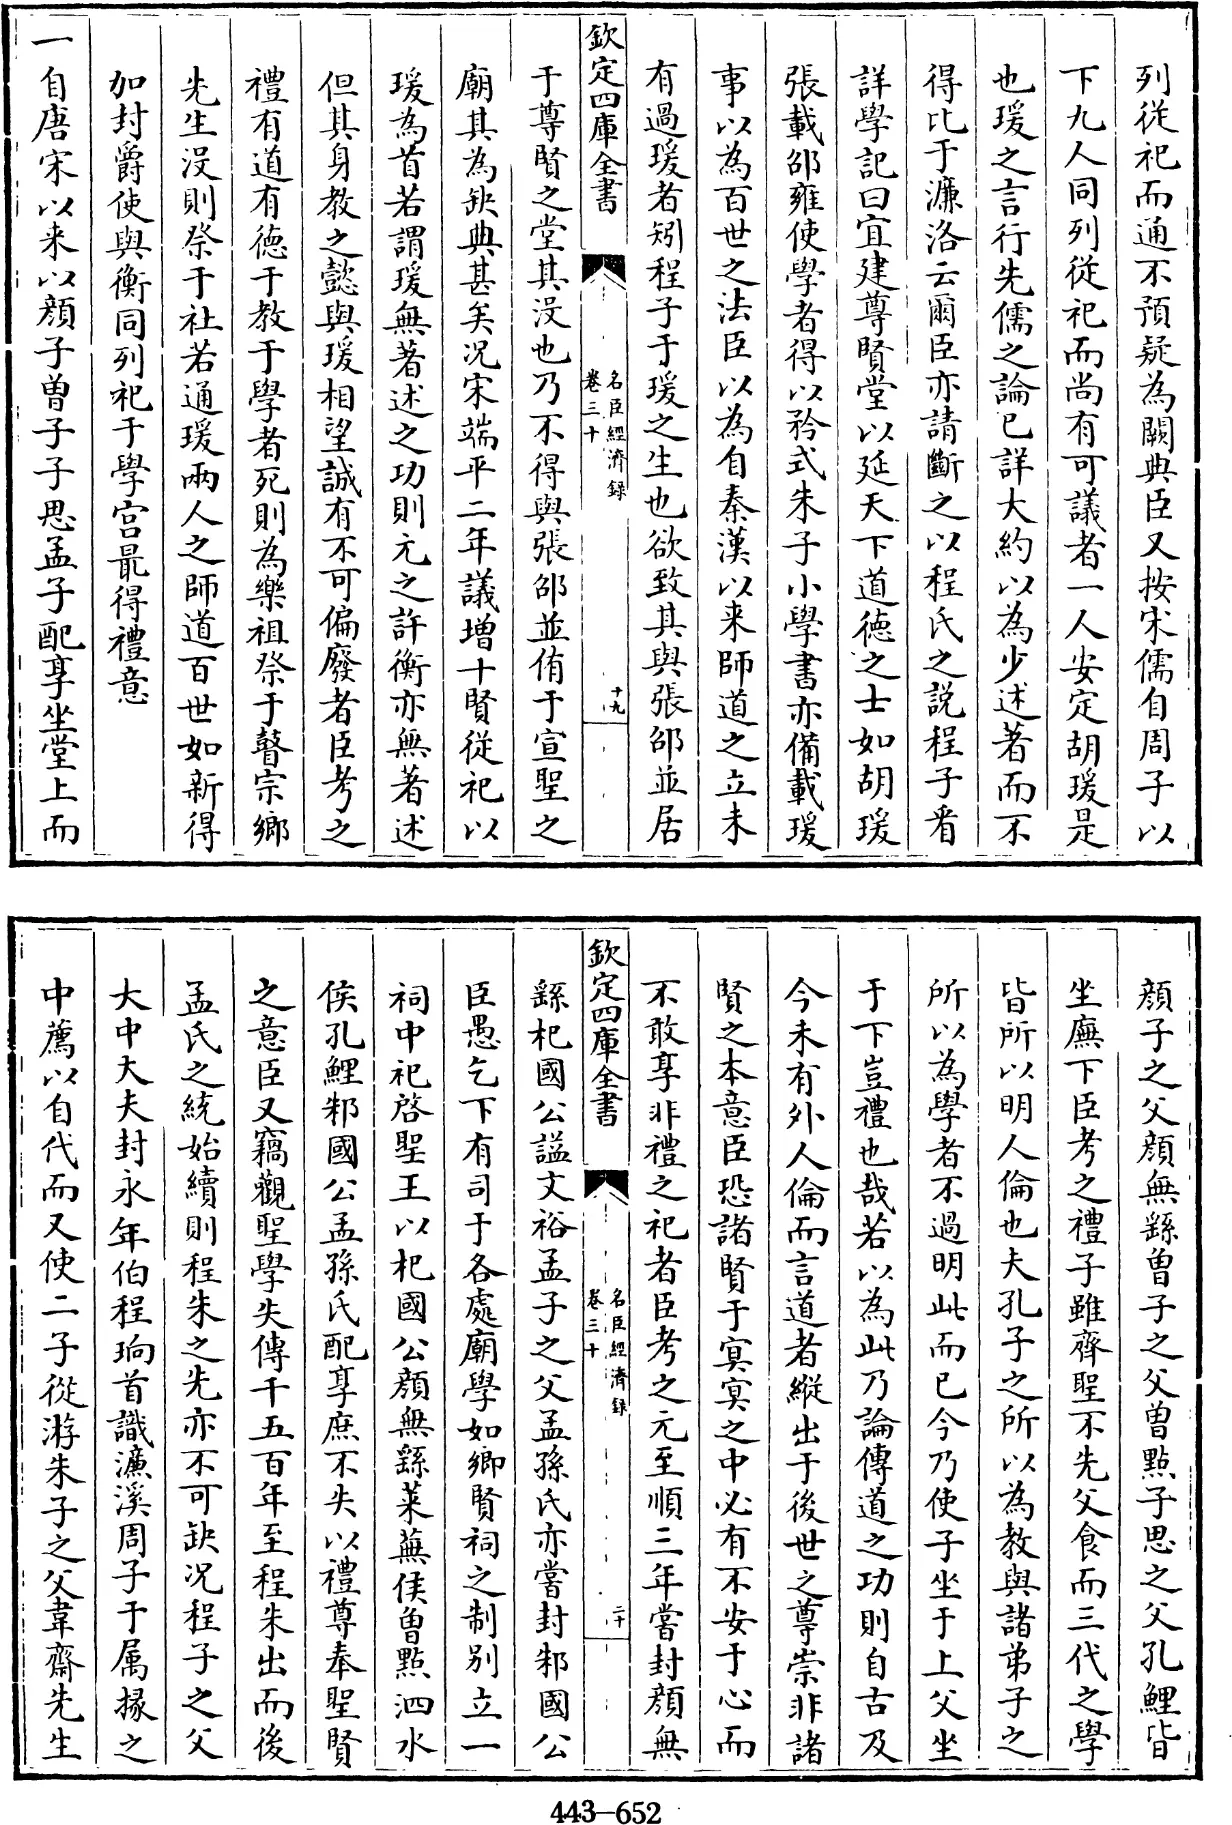 列從祀而通不預疑為闕典臣又按宋儒自周子以
下九人同列從祀而尚有可議者一人安定胡瑗是
也瑗之言行先儒之論已詳大約以為少述著而不
得比于濂洛云爾臣亦請斷之以程氏之說程子看
詳學記曰宜建尊賢堂以延天下道德之士如胡瑗
張載邵雍使學者得以矜式朱子小學書亦備載瑗
事以為百世之法臣以為自秦漢以來師道之立未
有過瑗者矧程子于瑗之生也欲致其與張邵並居
欽定四庫全書
名臣經濟錄
卷三十
十九
于尊賢之堂其沒也乃不得與張邵並侑于宣聖之
廟其為缺典甚矣況宋端平二年議增十賢從祀以
瑗為首若謂瑗無著述之功則元之許衡亦無著述
但其身教之懿與瑗相望誠有不可偏廢者臣考之
禮有道有德于教于學者死則為樂祖祭于瞽宗鄉
先生沒則祭于社若通瑗兩人之師道百世如新得
加封爵使與衡同列祀于學宮最得禮意
一自唐宋以來以顏子曾子子思孟子配享坐堂上而
顏子之父顏無繇曾子之父曾點子思之父孔鯉皆
坐廡下臣考之禮子雖齊聖不先父食而三代之學
皆所以明人倫也夫孔子之所以為教與諸弟子之
所以為學者不過明此而已今乃使子坐于上父坐
于下豈禮也哉若以為此乃論傳道之功則自古及
今未有外人倫而言道者縱出于後世之尊崇非諸
賢之本意臣恐諸賢于冥冥之中必有不安于心而
不敢享非禮之祀者臣考之元至順三年嘗封顏無
欽定四庫全書
名臣經濟錄
卷三十
二十
繇杞國公謚文裕孟子之父孟孫氏亦嘗封邾國公
臣愚乞下有司于各處廟學如鄉賢祠之制別立一
祠中祀啓聖王以杞國公顏無繇萊蕪侯曾點泗水
侯孔鯉邾國公孟孫氏配享庶不失以禮尊奉聖賢
之意臣又竊觀聖學失傳千五百年至程朱出而後
孟氏之統始續則程朱之先亦不可缺況程子之父
大中大夫封永年伯程珦首識濂溪周子于属掾之
中薦以自代而又使二子從游朱子之父韋齋先生
443-652